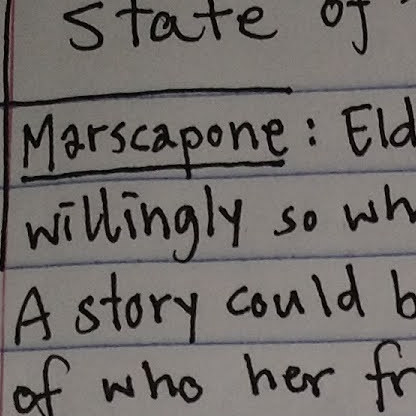 state of
Marscapone: Eld
willingly so wh
A story could b
of who her fr